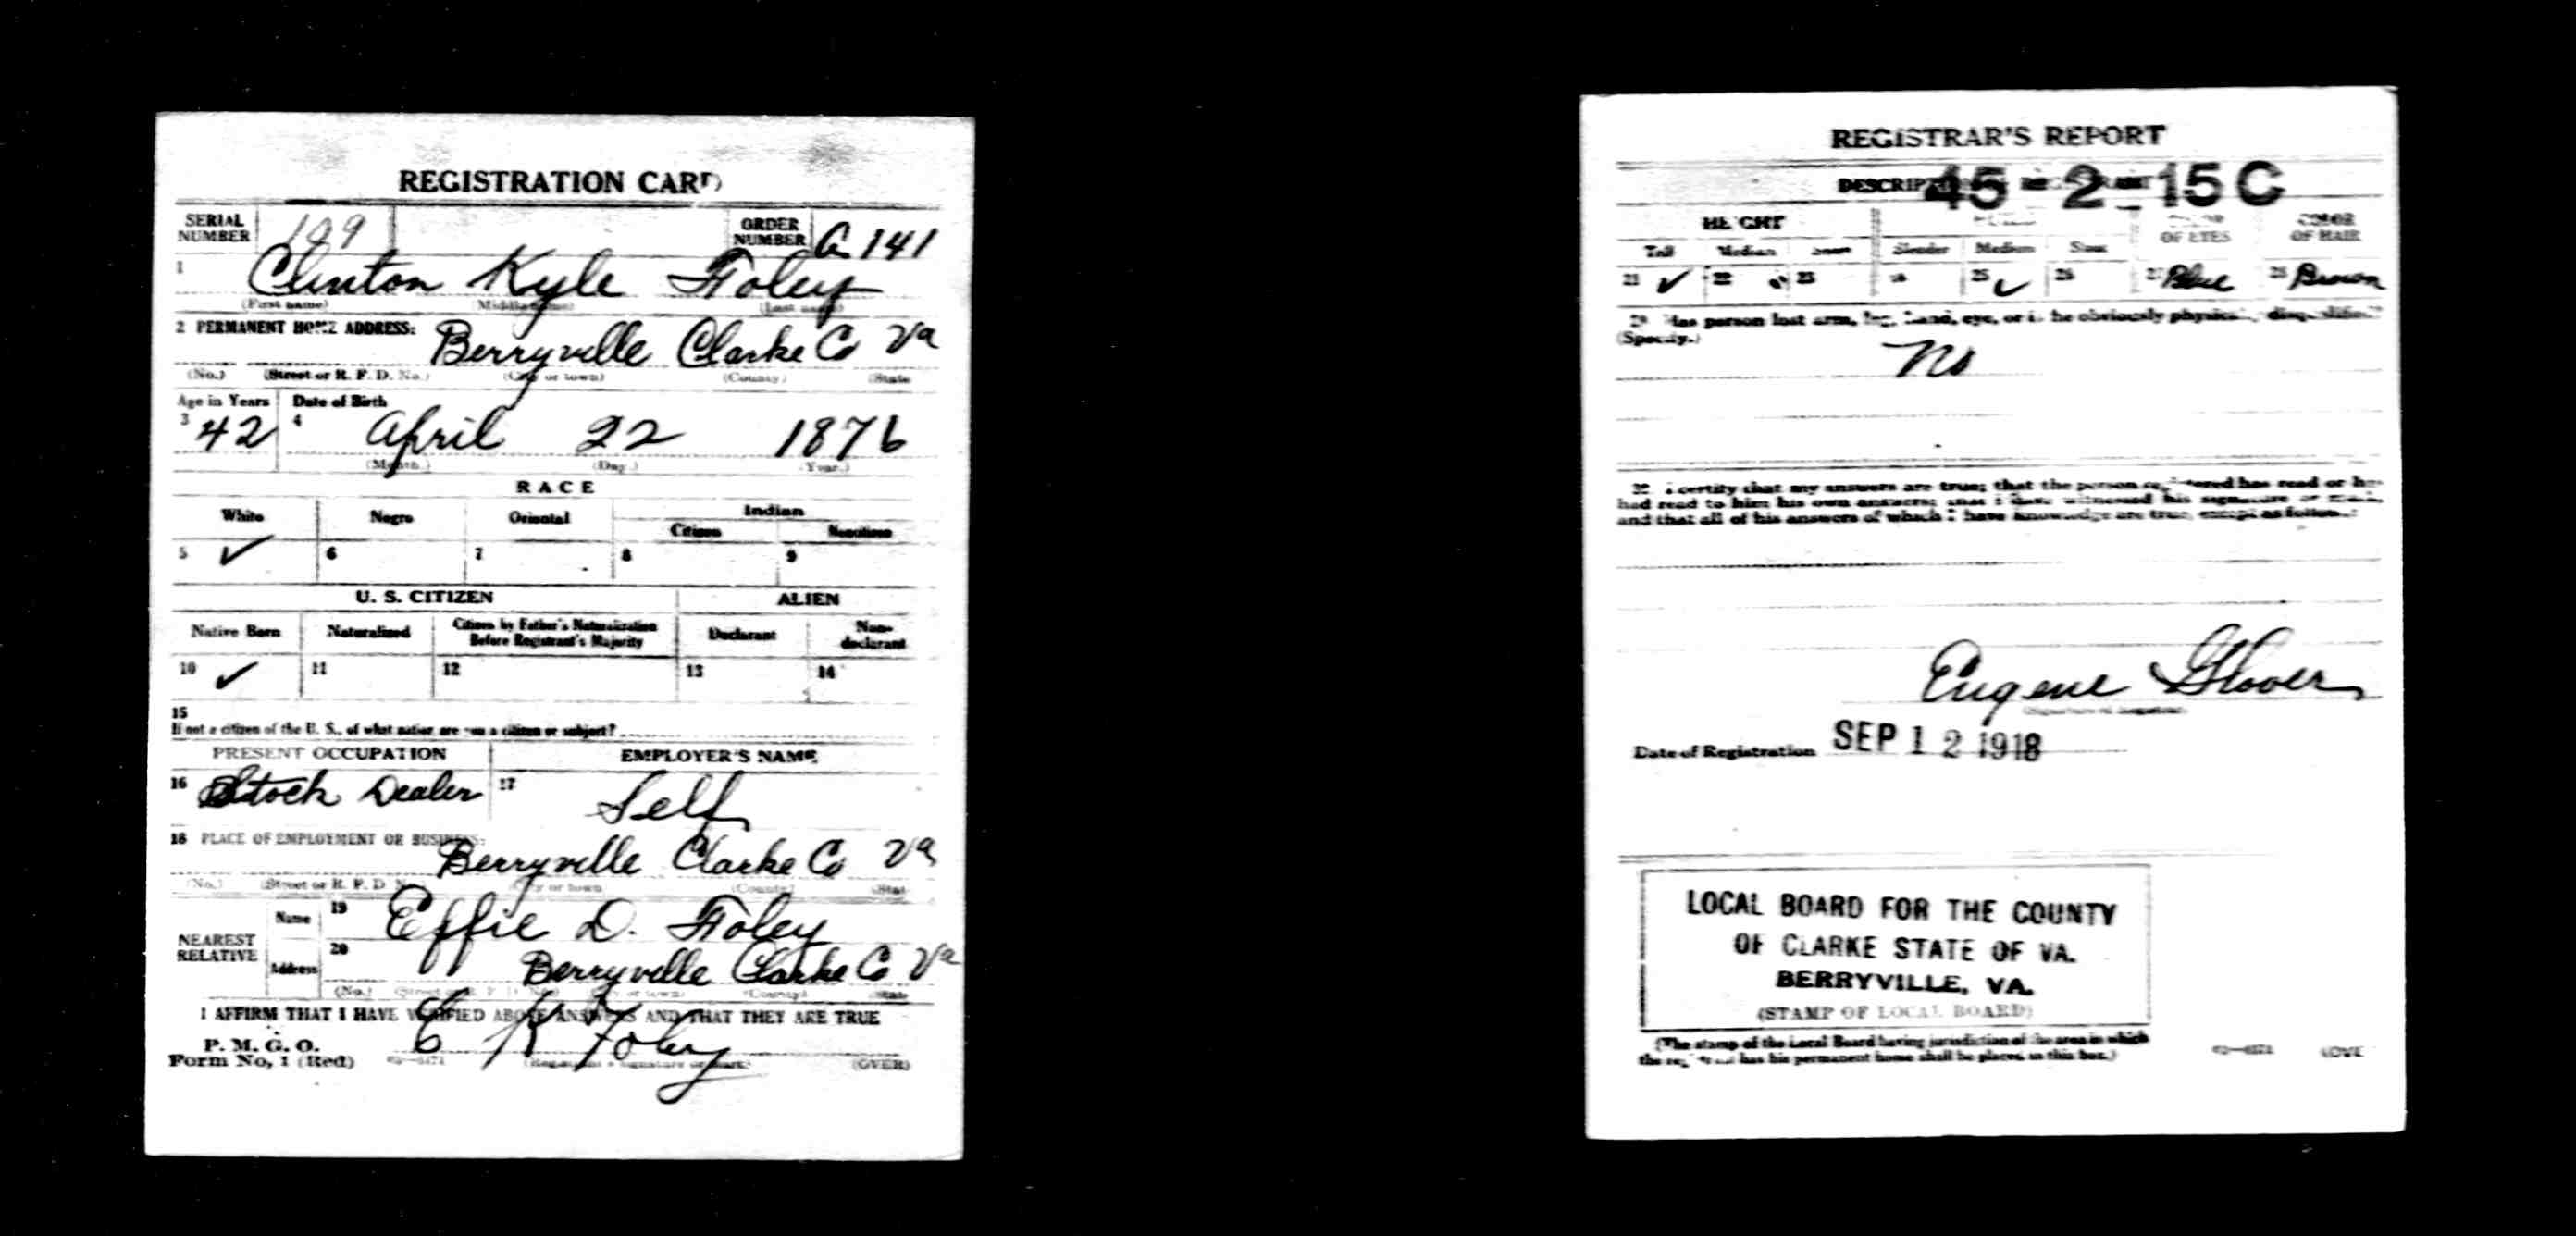 REGISTRATION CARD
SERIAL NUMBER 189 ORDER NUMBER A 141
1 Clinton Kyle Foley
(First name) (Middle name) (Last name)
2 PERMANENT HOME ADDRESS:
Berryville Clarke Co Va
(No.) (Street or R. F. D. No.) (City or town) (County) (State
Age in Years Date of Birth
3 42 4 April 22 1876
(Month.) (Day.) (Year.)
RACE
White Negro Oriental Indian
Citizen Noncitizen
5 ✓ 6 7 8 9
U. S. CITIZEN ALIEN
Native Born Naturalized Citizen by Father's Naturalization Before Registrant's Majority Declarant Non-declarant
10 ✓ 11 12 13 14
15
If not a citizen of the U. S., of what nation are you a citizen or subject?
PRESENT OCCUPATION EMPLOYER'S NAME
16 Stock Dealer 17 Self
18 PLACE OF EMPLOYMENT OR BUSINESS:
Berryville Clarke Co Va
(No.) (Street or R. F. D. No.) (City or town) (County) (State
NEAREST RELATIVE
Name 19 Effie D. Foley
Address 20 Berryville Clarke Co Va
(No.) (City or town) (County) (State
I AFFIRM THAT I HAVE VERIFIED ABOVE ANSWERS AND THAT THEY ARE TRUE
P. M. G. O.
Form No. 1 (Red) C K Foley
(Registrant's signature or mark) (OVER)
REGISTRAR'S REPORT
45 2 15 C
HEIGHT
COLOR OF EYES COLOR OF HAIR
Tall Medium Short Slender Medium Stout
21 ✓ 22 23 24 25 ✓ 26 27 Blue 28 Brown
29 Has person lost arm, leg, hand, eye, or is he obviously physically disqualified?
(Specify.)
No
30 I certify that my answers are true; that the person registered has read or has
had read to him his own answers; that I have witnessed his signature or mark,
and that all of his answers of which I have knowledge are true, except as follows:
Eugene Glover
(Signature of Registrar)
Date of Registration SEP 12 1918
LOCAL BOARD FOR THE COUNTY
OF CLARKE STATE OF VA.
BERRYVILLE, VA.
(STAMP OF LOCAL BOARD)
(The stamp of the Local Board having jurisdiction of the area in which
the registrant has his permanent home shall be placed in this box.)